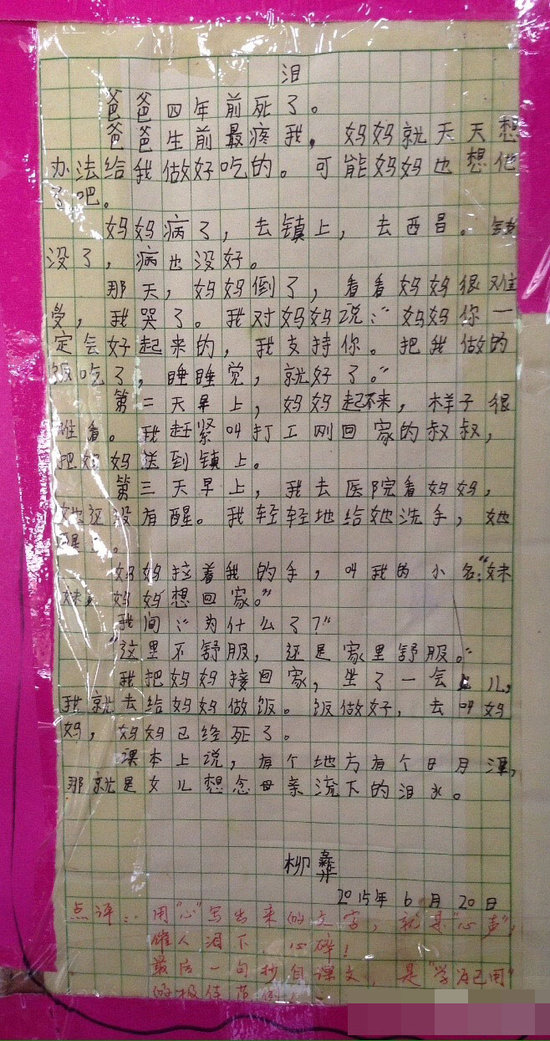 泪
爸爸四年前死了。
爸爸生前最疼我，妈妈就天天想
办法给我做好吃的。可能妈妈也想他
了吧。
妈妈病了，去镇上，去西昌。钱
没了，病也没好。
那天，妈妈倒了，看看妈妈很难
受，我哭了。我对妈妈说：“妈妈你一
定会好起来的，我支持你。把我做的
饭吃了，睡睡觉，就好了。”
第二天早上，妈妈起不来，样子很
难看。我赶紧叫打工刚回家的叔叔，
把妈妈送到镇上。
第三天早上，我去医院看妈妈，
她还没有醒。我轻轻地给她洗手，她
醒了。
妈妈拉着我的手，叫我的小名：“妹
妹，妈妈想回家。”
我问：“为什么了？”
“这里不舒服，还是家里舒服。”
我把妈妈接回家，坐了一会儿，
我就去给妈妈做饭。饭做好，去叫妈
妈，妈妈已经死了。
课本上说，有个地方有个日月潭，
那就是女儿想念母亲流下的泪水。
柳彝
2015年6月20日
点评：用“心”写出来的文字，就是“心声”，
催人泪下，心碎！
最后一句抄自课文，是“学为己用”
的极佳范例。